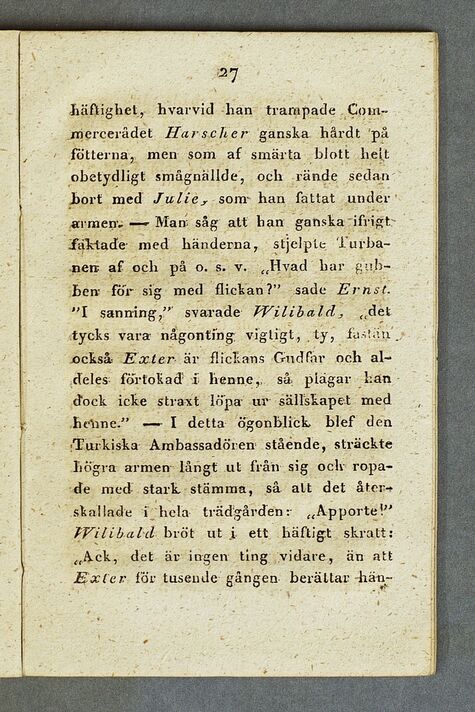 27
häftighet, hvarvid han trampade Com-
mercerådet Harscher ganska hårdt på
fötterna, men som af smärta blott helt
obetydligt smågnällde, och rände sedan
bort med Julie, som han fattat under
armen. — Man såg att han ganska ifrigt
fäktade med händerna, stjelpte Turba-
nen af och på o. s. v. „Hvad har gub-
ben för sig med flickan?” sade Ernst.
"I sanning,” svarade Wilibald, „det
tycks vara någonting vigtigt, ty, fastän
också Exter är flickans Gudfar och al-
deles förtokad i henne, så plägar han
dock icke straxt löpa ur sällskapet med
henne.” — I detta ögonblick blef den
Turkiska Ambassadören stående, sträckte
högra armen långt ut från sig och ropa-
de med stark stämma, så att det åter-
skallade i hela trädgården: „Apporte!”
Wilibald bröt ut i ett häftigt skratt:
„Ack, det är ingen ting vidare, än att
Exter för tusende gången berättar hän-